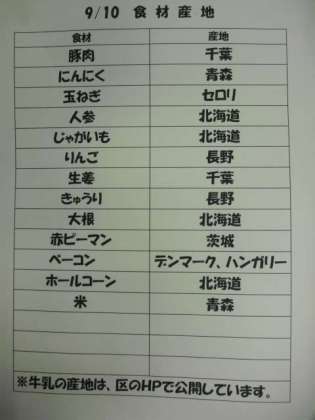 9/10 食材産地
食材 産地
豚肉 千葉
にんにく 青森
玉ねぎ セロリ
人参 北海道
じゃがいも 北海道
りんご 長野
生姜 千葉
きゅうり 長野
大根 北海道
赤ピーマン 茨城
ベーコン デンマーク、ハンガリー
ホールコーン 北海道
米 青森
※牛乳の産地は、区のHPで公開しています。